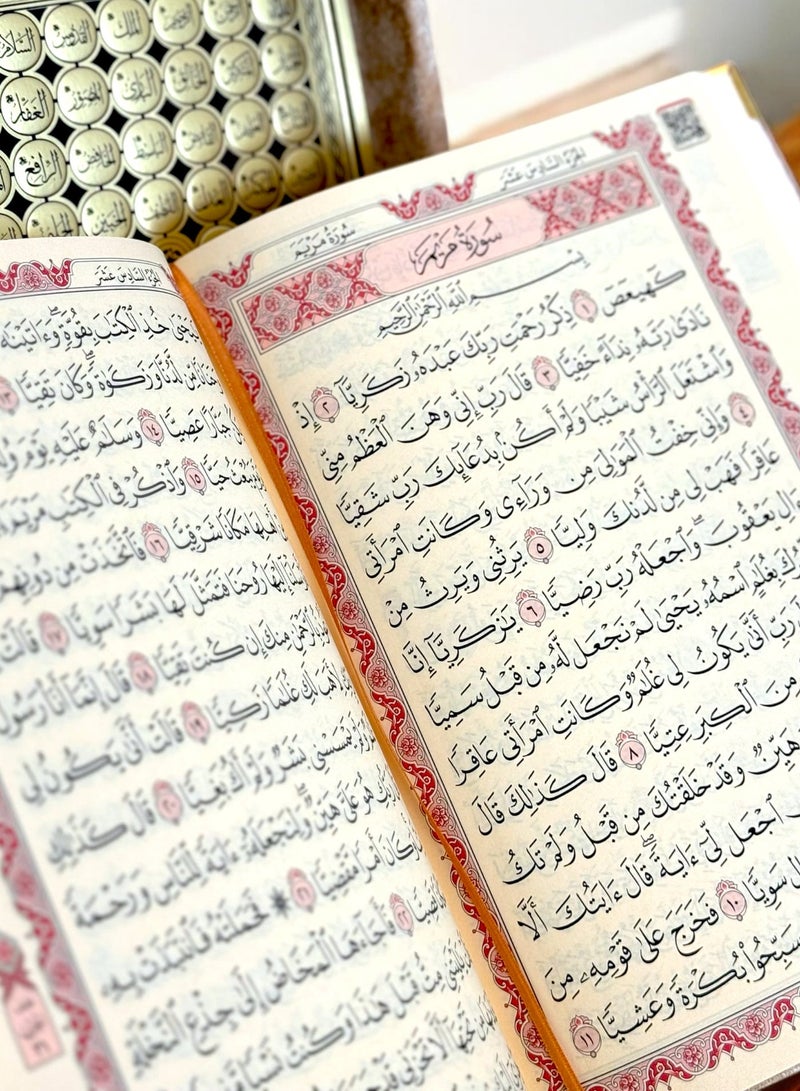 السلام
القدوس
الملك
الغفار
القهار
المصور
البارئ
الخالق
الرافع
الخافض
الباسط
الجزء السادس عشر
سورة مريم
سورة مريم
بسم الله الرحمن الرحيم
كهيعص ١ ذكر رحمت ربك عبده زكريا ٢ إذ
نادى ربه نداء خفيا ٣ قال رب إني وهن العظم مني
واشتعل الرأس شيبا ولم أكن بدعائك رب شقيا ٤
وإني خفت الموالي من وراءي وكانت امرأتي
عاقرا فهب لي من لدنك وليا ٥ يرثني ويرث من
ءال يعقوب واجعله رب رضيا ٦ يزكريا إنا
نبشرك بغلم اسمه يحيى لم نجعل له من قبل سميا
رب أنى يكون لي غلم وكانت امرأتي عاقرا
من الكبر عتيا ٨ قال كذلك قال
هين وقد خلقتك من قبل ولم تك
اجعل لي ءاية قال ءايتك ألا
سويا ١٠ فخرج على قومه من
سبحوا بكرة وعشيا ١١
الجزء السادس عشر
يحيى خذ الكتب بقوة وءاتينه
من لدنا وزكوة وكان تقيا ١٣
جبارا عصيا ١٤ وسلم عليه يوم
يبعث حيا ١٥ واذكر في الكتب مريم
أهلها مكانا شرقيا ١٦ فاتخذت من دونهم
إليها روحنا فتمثل لها بشرا سويا ١٧ قالت
بالرحمن منك إن كنت تقيا ١٨ قال إنما أنا رسول
لأهب لك غلما زكيا ١٩ قالت أنى يكون لي
يمسسني بشر ولم أك بغيا ٢٠ قال كذلك
هو علي هين ولنجعله ءاية للناس ورحمة
وكان أمرا مقضيا ٢١ فحملته فانتبذت به
قصيا ٢٢ فأجاءها المخاض إلى جذع النخلة
يليتني مت قبل هذا وكنت نسيا
من تحتها ألا تحزني قد جعل